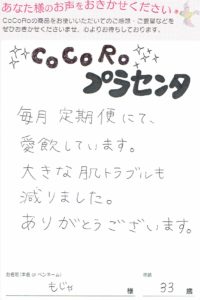 あなた様のお声をおきかせください
CoCoRoの商品をお使いいただいてのご感想・ご要望などを
ぜひお聞かせくださいませ。心よりお待ちしております。
CoCoRo
プラセンタ
毎月 定期便にて、
愛飲しています。
大きな肌トラブルも
減りました。
ありがとうございます。
お名前(本名 or ペンネーム)
年齢
もじゃ 様 33 歳